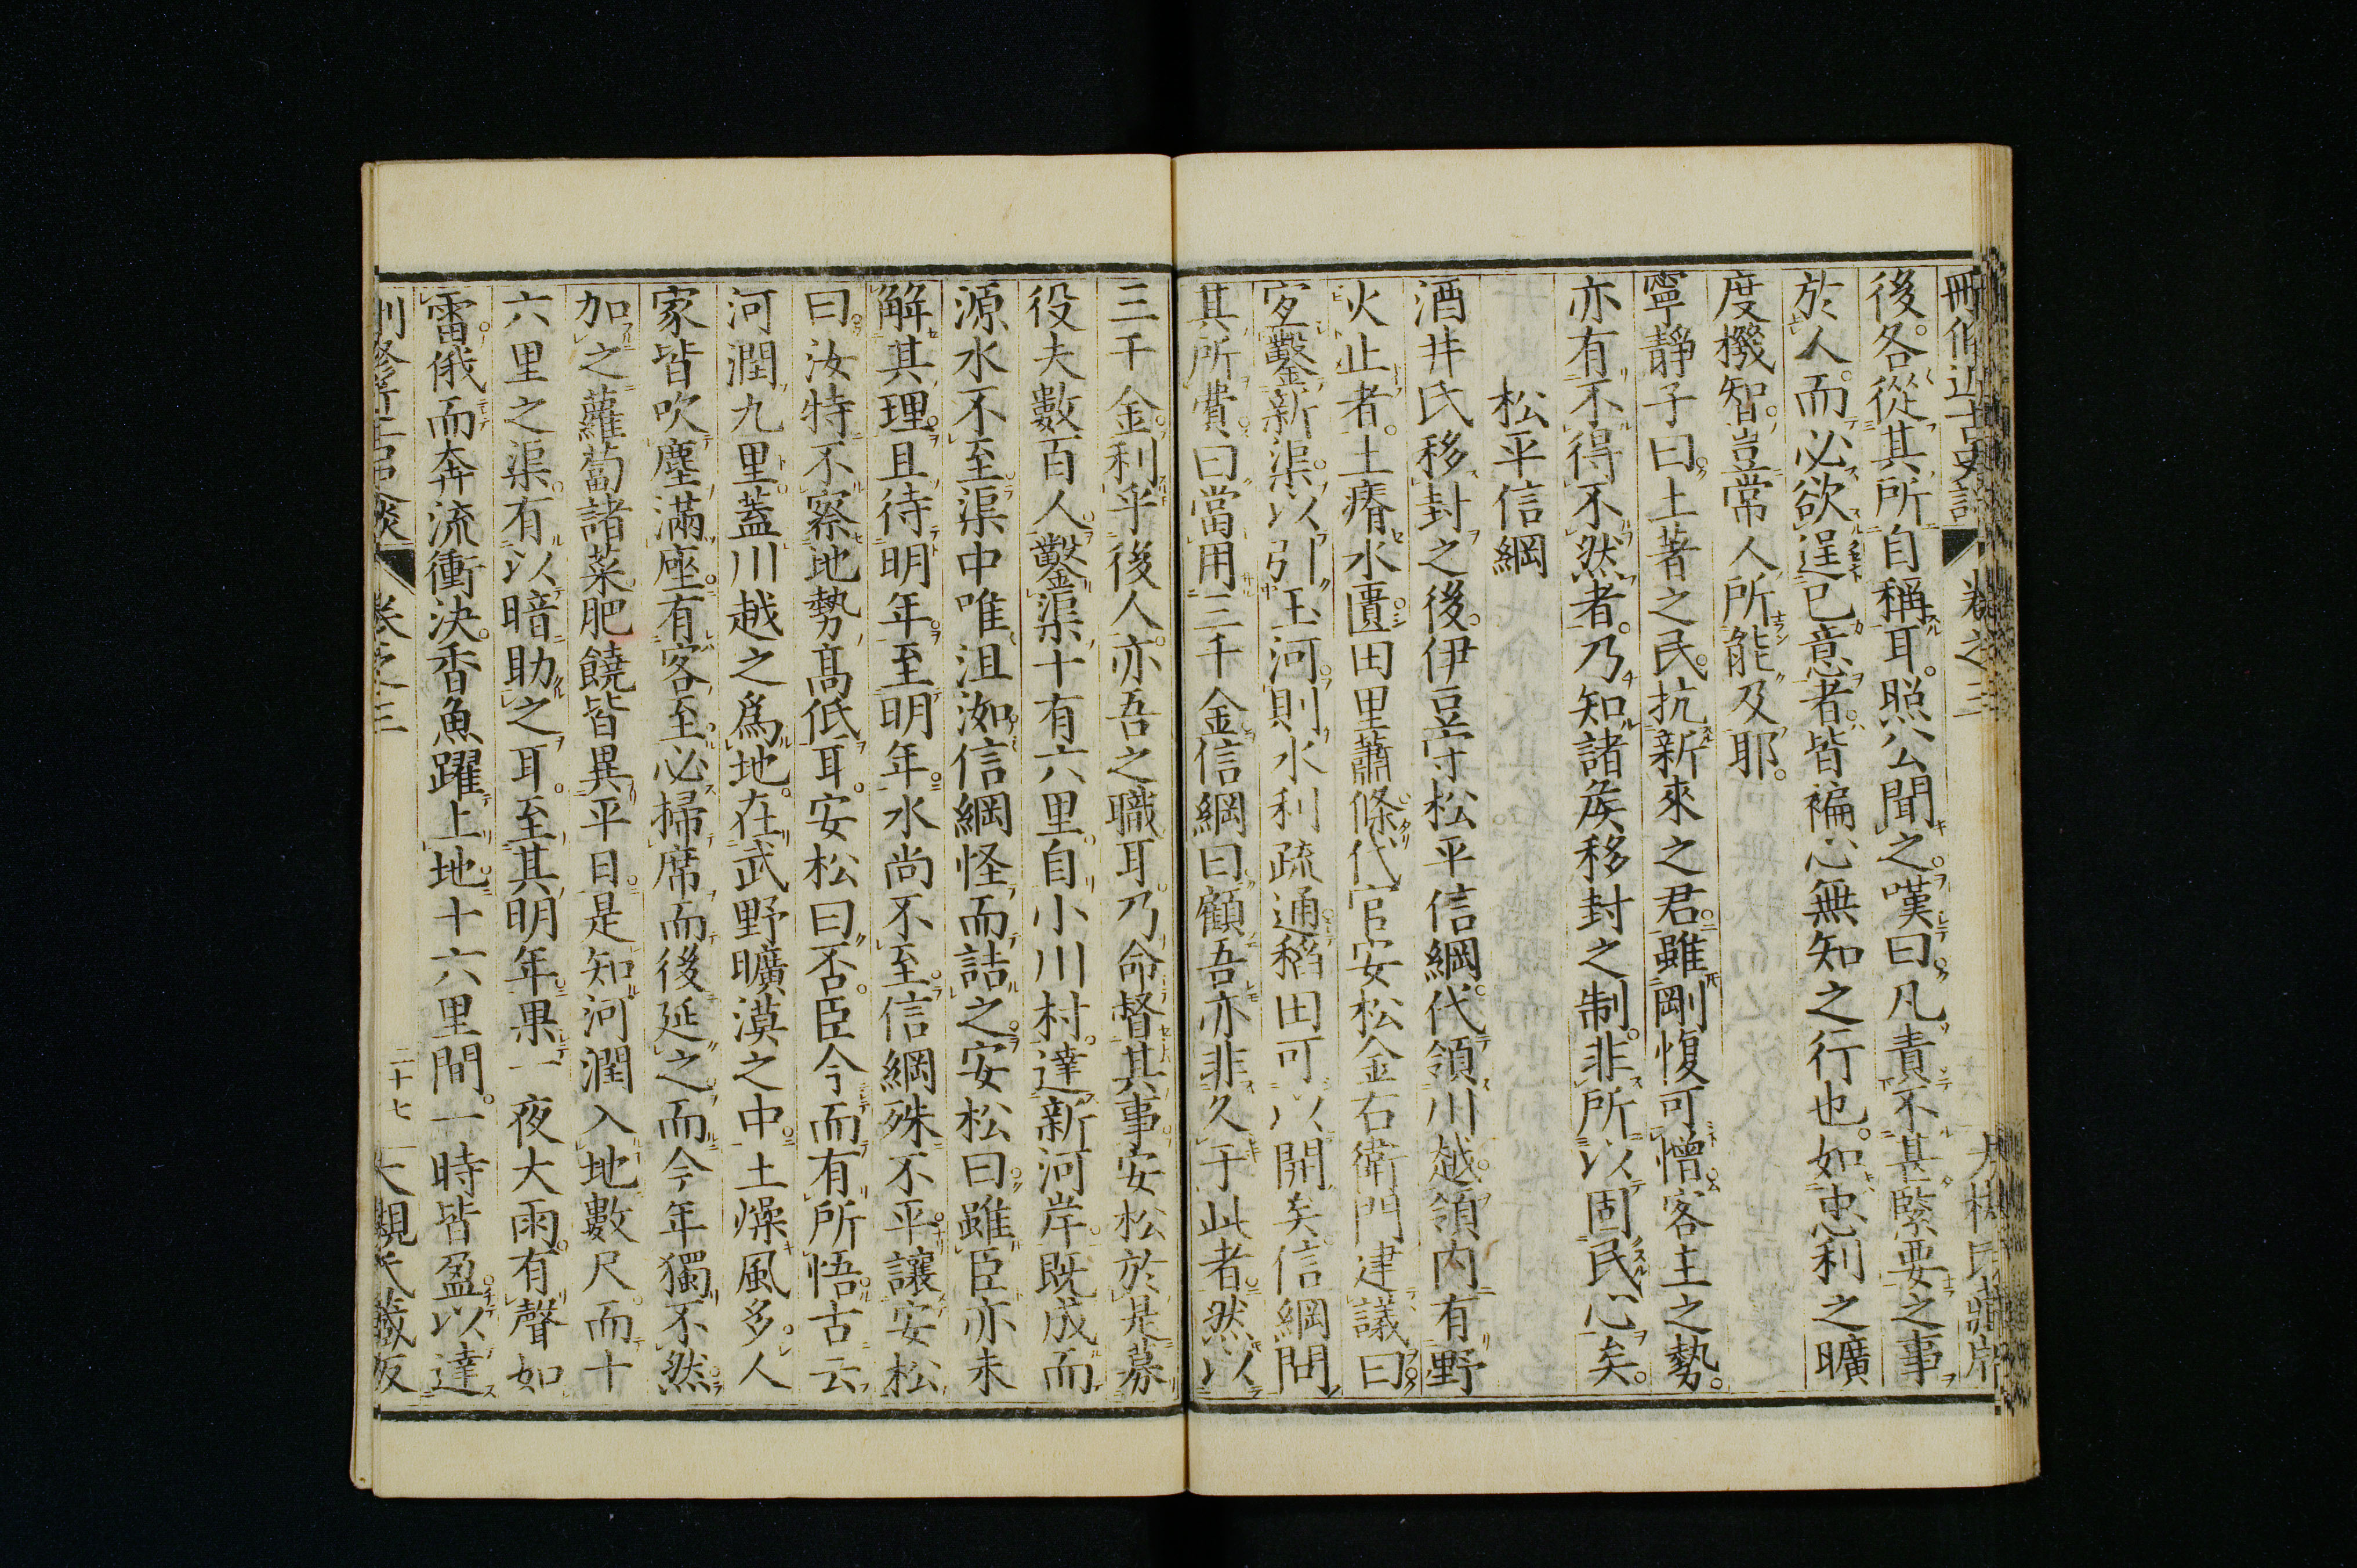 刪修近古史談 卷之三
後各從其所自稱耳。照公聞之嘆曰。凡責不甚緊要之事
於人。而必欲逞己意者。皆褊心無知之行也。如忠利之曠
度機智。豈常人所能及耶。
寧靜子曰。土著之民。抗新來之君。雖剛愎可憎。客主之勢。
亦有不得不然者。乃知諸矦移封之制。非所以固民心矣。
松平信綱
酒井氏移封之後。伊豆守松平信綱。代領川越。領内有野
火止者。土瘠水匱。田里蕭條。代官安松金右衛門建議曰。
宜鑿新渠。以引玉河。則水利疏通。稻田可以開矣。信綱問
其所費。曰當用三千金。信綱曰。顧吾亦非久于此者。然以
三千金。利乎後人。亦吾之職耳。乃命督其事。安松於是募
役夫數百人。鑿渠十有六里。自小川村。達新河岸。既成而
源水不至。渠中唯沮洳。信綱怪而詰之。安松曰。雖臣亦未
解其理。且待明年。至明年。水尚不至。信綱殊不平。讓安松
曰。汝特不察地勢高低耳。安松曰。否。臣今而有所悟。古云
河潤九里。蓋川越之爲地。在武野曠漠之中。土燥風多。人
家皆吹塵滿座。有客至。必掃席而後延之。而今年獨不然。
加之蘿蔔諸菜肥饒。皆異平日。是知河潤入地數尺。而十
六里之渠。有以暗助之耳。至其明年。果一夜大雨。有聲如
雷。俄而奔流衝決。香魚躍上地。十六里間。一時皆盈。以達
刪修近古史談 卷之三 二十七 大槻氏藏版